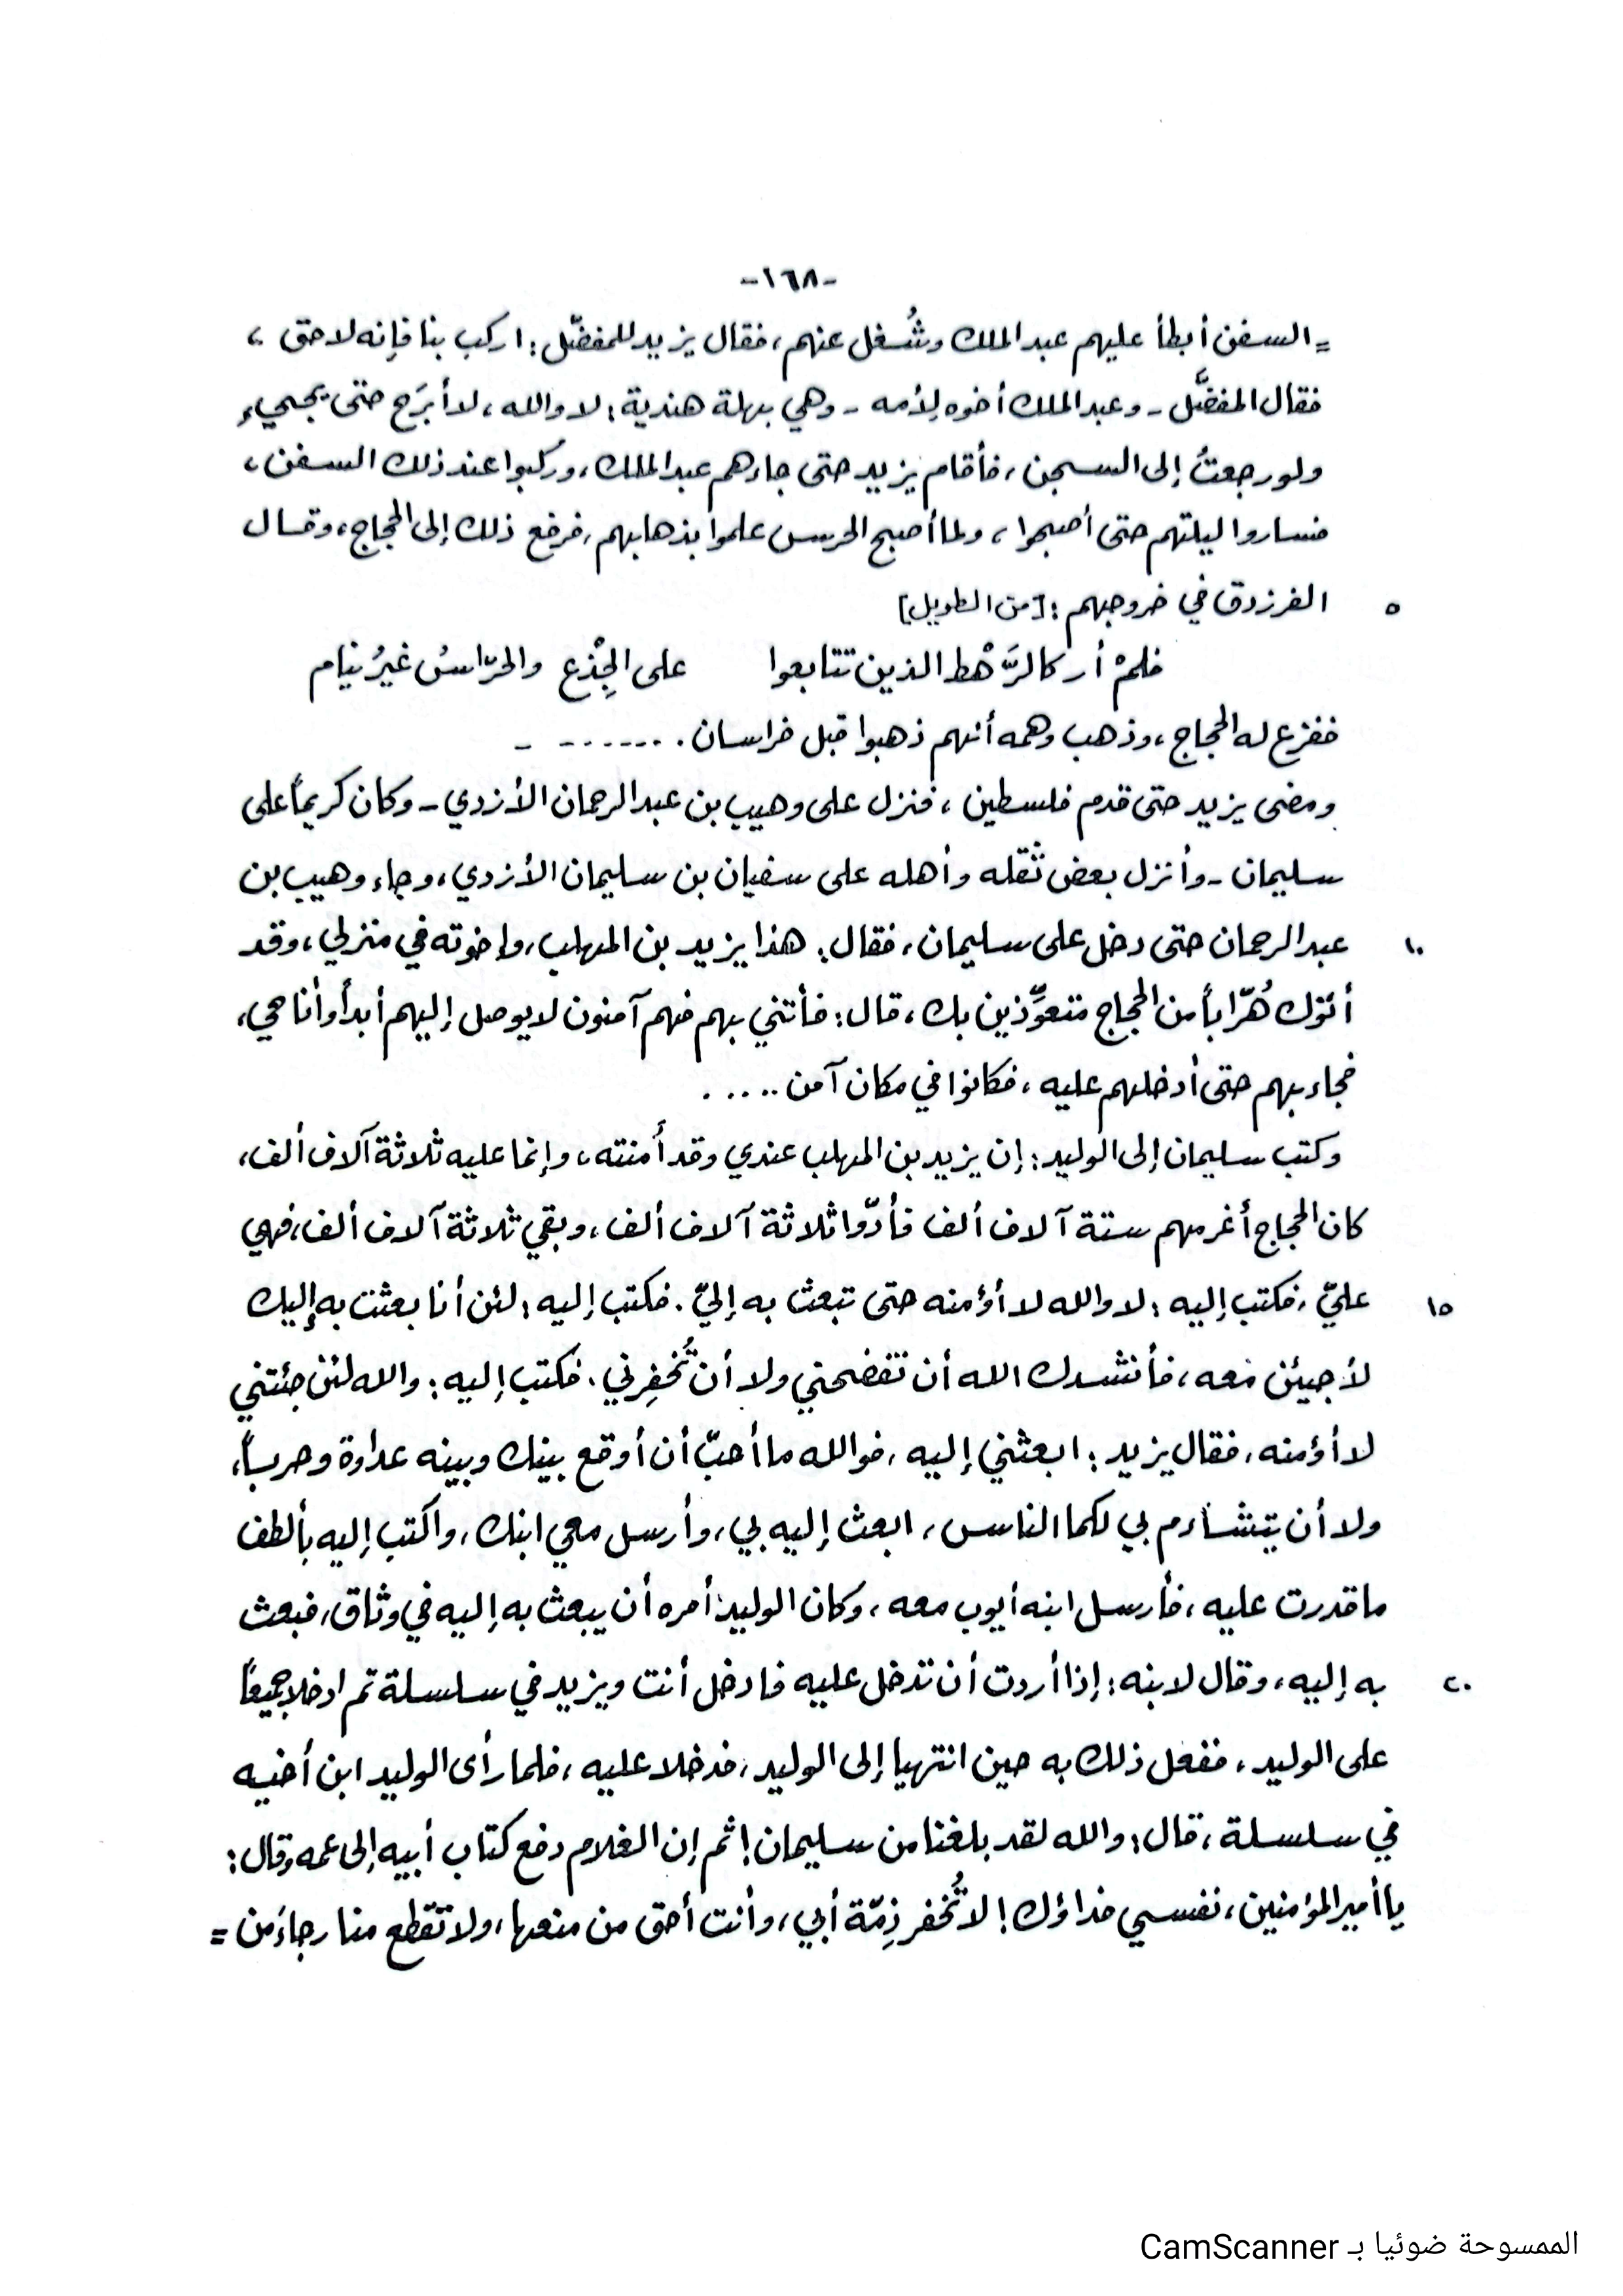 -١٦٨-
= السفن أبطأ عليهم عبد الملك وشُغل عنهم، فقال يزيد للمفضّل: اركب بنا فإنه لاحق،
فقال المفضَّل - وعبد الملك أخوه لأمه - وهي بهلة هندية: لا والله، لا أبرَح حتى يجيء
ولو رجعتُ إلى السجن، فأقام يزيد حتى جاءهم عبد الملك، وركبوا عند ذلك السفن،
فساروا ليلتهم حتى أصبحوا، ولما أصبح الحرس علموا بذهابهم، فرفع ذلك إلى الحجاج، وقال
٥ الفرزدق في خروجهم: [من الطويل]
فلمْ أر كالرَّهْط الذين تتابعوا على الجِذْع والحرّاسُ غيرُ نيام
ففزع له الحجاج، وذهب وهمه أنهم ذهبوا قبل خراسان. ....... -
ومضى يزيد حتى قدم فلسطين، فنزل على وهيب بن عبد الرحمان الأزدي - وكان كريماً على
سليمان - وأنزل بعض ثَقله وأهله على سفيان بن سليمان الأزدي، وجاء وهيب بن
١٠ عبد الرحمان حتى دخل على سليمان، فقال: هذا يزيد بن المهلب، وإخوته في منزلي، وقد
أتوك هُرّاباً من الحجاج متعوِّذين بك، قال: فأتني بهم فهم آمنون لا يوصل إليهم أبداً وأنا حي،
فجاء بهم حتى أدخلهم عليه، فكانوا في مكان آمن .....
وكتب سليمان إلى الوليد: إن يزيد بن المهلب عندي وقد أمنته، وإنما عليه ثلاثة آلاف ألف،
كان الحجاج أغرمهم ستة آلاف ألف فأدّوا ثلاثة آلاف ألف، وبقي ثلاثة آلاف ألف، فهي
١٥ عليّ، فكتب إليه: لا والله لا أؤمنه حتى تبعث به إليّ. فكتب إليه: لئن أنا بعثت به إليك
لأجيئن معه، فأنشدك الله أن تفضحني ولا أن تُخفِرني. فكتب إليه: والله لئن جئتني
لا أؤمنه، فقال يزيد: ابعثني إليه، فوالله ما أحبّ أن أوقع بينك وبينه عداوة وحرباً،
ولا أن يتشاءم بي لكما الناس، ابعث إليه بي، وأرسل معي ابنك، واكتب إليه بألطف
ما قدرت عليه، فأرسل ابنه أيوب معه، وكان الوليد أمره أن يبعث به إليه في وثاق، فبعث
٢٠ به إليه، وقال لابنه: إذا أردت أن تدخل عليه فادخل أنت ويزيد في سلسلة ثم ادخلا جميعاً
على الوليد، ففعل ذلك به حين انتهيا إلى الوليد، فدخلا عليه، فلما رأى الوليد ابن أخيه
في سلسلة، قال: والله لقد بلغنا من سليمان! ثم إن الغلام دفع كتاب أبيه إلى عمه وقال:
يا أمير المؤمنين، نفسي فداؤك! لا تُخفر ذِمّة أبي، وأنت أحق من منعها، ولا تقطع منا رجاءَ من =
الممسوحة ضوئيا بـ CamScanner